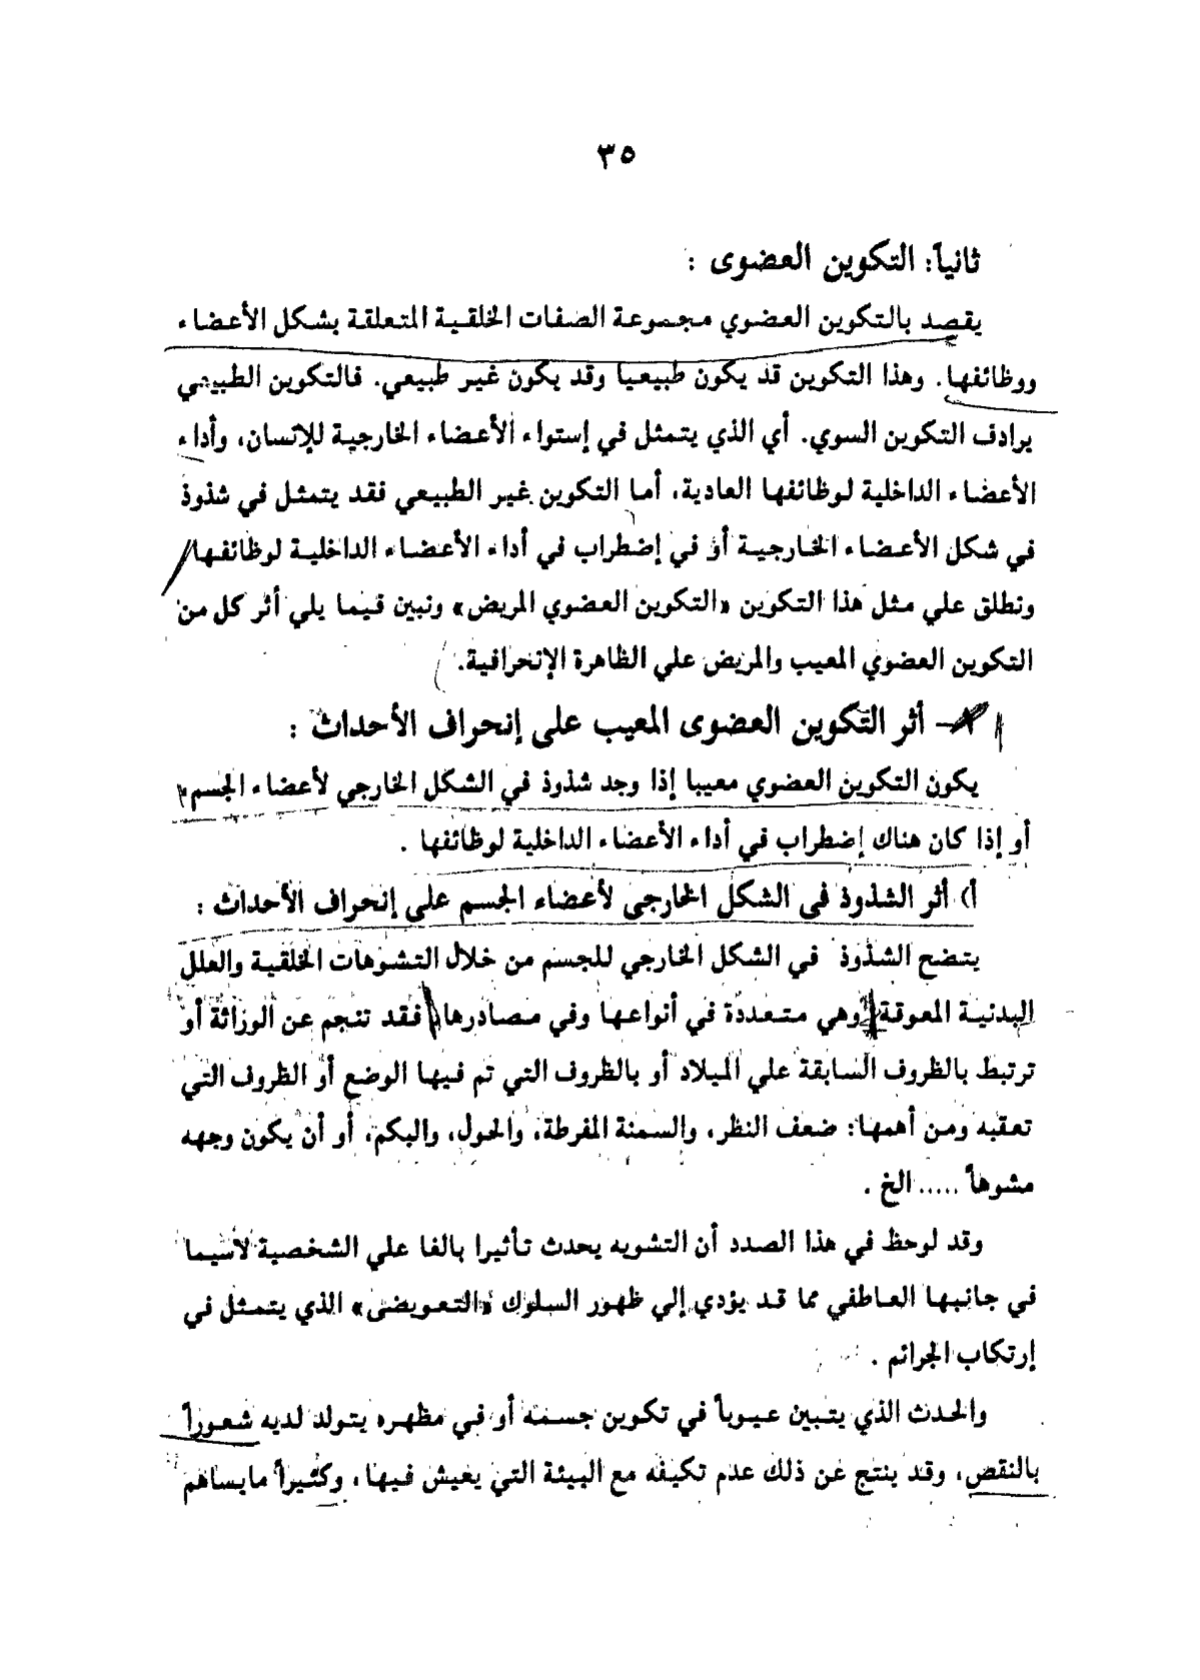 ٣٥
ثانياً: التكوين العضوى :
يقصد بالتكوين العضوي مجموعة الصفات الخلقية المتعلقة بشكل الأعضاء
ووظائفها. وهذا التكوين قد يكون طبيعيا وقد يكون غير طبيعي. فالتكوين الطبيعي
يرادف التكوين السوي. أي الذي يتمثل في إستواء الأعضاء الخارجية للإنسان، وأداء
الأعضاء الداخلية لوظائفها العادية، أما التكوين غير الطبيعي فقد يتمثل في شذوذ
في شكل الأعضاء الخارجية أو في إضطراب في أداء الأعضاء الداخلية لوظائفها
ونطلق علي مثل هذا التكوين «التكوين العضوي المريض» ونبين فيما يلي أثر كل من
التكوين العضوي المعيب والمريض علي الظاهرة الإنحرافية.
١ – أثر التكوين العضوى المعيب على إنحراف الأحداث :
يكون التكوين العضوي معيبا إذا وجد شذوذ في الشكل الخارجي لأعضاء الجسم
أو إذا كان هناك إضطراب في أداء الأعضاء الداخلية لوظائفها .
أ) أثر الشذوذ فى الشكل الخارجى لأعضاء الجسم على إنحراف الأحداث :
يتضح الشذوذ في الشكل الخارجي للجسم من خلال التشوهات الخلقية والعلل
البدنية المعوقة وهي متعددة في أنواعها وفي مصادرها فقد تنجم عن الوراثة أو
ترتبط بالظروف السابقة علي الميلاد أو بالظروف التي تم فيها الوضع أو الظروف التي
تعقبه ومن أهمها: ضعف النظر، والسمنة المفرطة، والحول، والبكم، أو أن يكون وجهه
مشوهاً ..... الخ .
وقد لوحظ في هذا الصدد أن التشويه يحدث تأثيرا بالغا علي الشخصية لاسيما
في جانبها العاطفي مما قد يؤدي إلي ظهور السلوك «التعويضى» الذي يتمثل في
إرتكاب الجرائم .
والحدث الذي يتبين عيوباً في تكوين جسمه أو في مظهره يتولد لديه شعوراً
بالنقص، وقد ينتج عن ذلك عدم تكيفه مع البيئة التي يعيش فيها، وكثيراً مايساهم